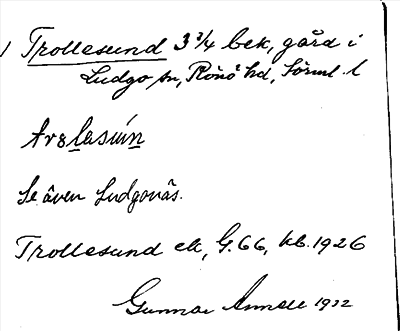 Trollesund 3 3/4 bek, gård i
Ludgo sn, Rönö hd, Sörml. l
Se även Ludgonäs.
Trollesund ek, G.66, kb. 1926
Gunnar Annell 1932